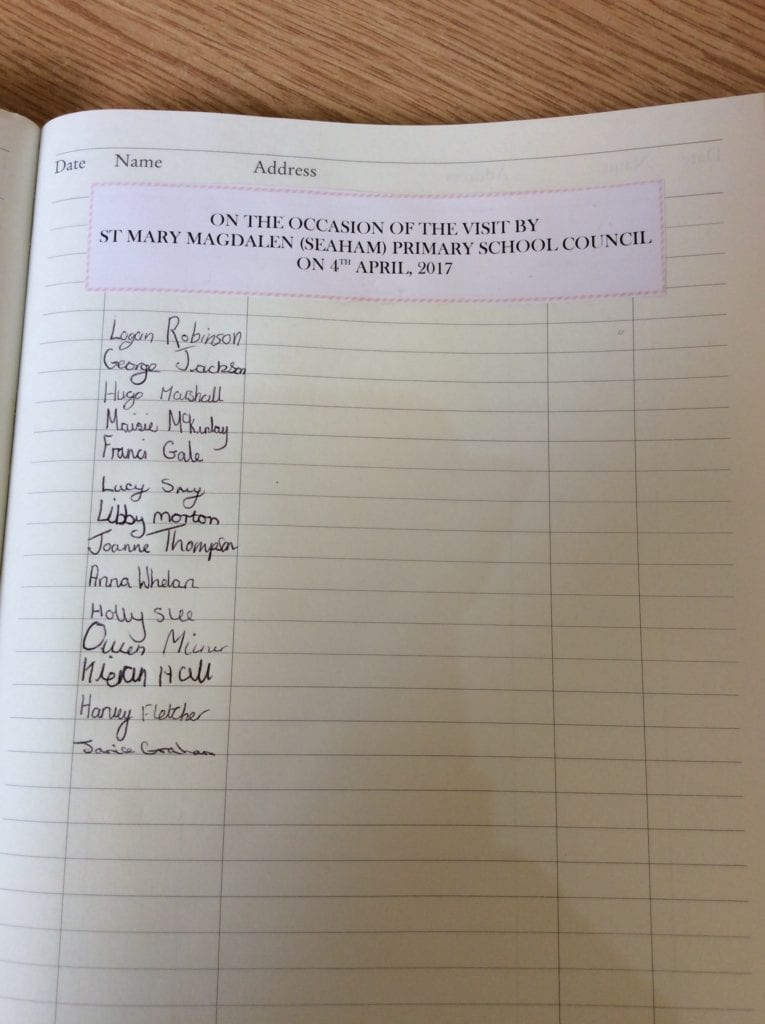 Date Name Address
ON THE OCCASION OF THE VISIT BY
ST MARY MAGDALEN (SEAHAM) PRIMARY SCHOOL COUNCIL
ON 4TH APRIL, 2017
Logan Robinson
George Jackson
Hugo Marshall
Maisie McKinlay
Franci Gale
Lucy Smy
Libby morton
Joanne Thompson
Anna Whelan
Holly Slee
Owen
Kieran Hall
Harvey Fletcher
Janice Graham